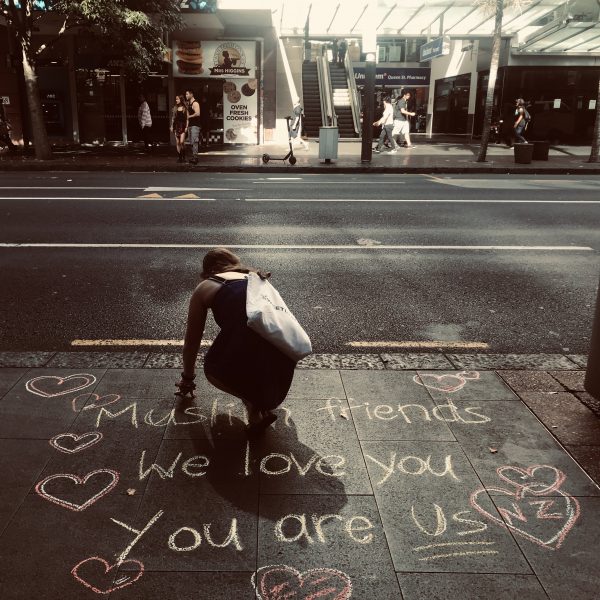 Mrs HIGGINS
OVEN
FRESH
COOKIES
Queen St. Pharmacy
Muslim friends
We love you
You are Us
NZ